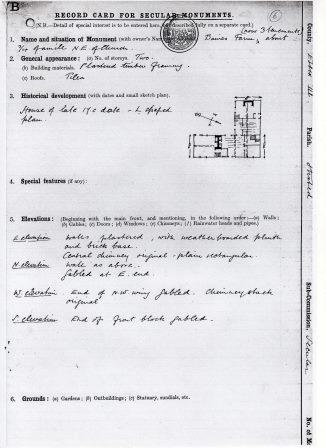 B
RECORD CARD FOR SECULAR MONUMENTS.
(6)
(N.B.—Detail of special interest is to be entered here, described fully on a separate card.)
(now 3 tenements)
1. Name and situation of Monument (with owner's Name Davies Farm, about
7/10 of a mile N.E. of church
2. General appearance: (a) No. of storeys. Two.
(b) Building materials. Plastered timber framing
(c) Roofs. Tiles
3. Historical development (with dates and small sketch plan).
House of late 17c date - L shaped
plan.
4. Special features (if any):
5. Elevations: (Beginning with the main front, and mentioning, in the following order:—(a) Walls;
(b) Gables; (c) Doors; (d) Windows; (e) Chimneys; (f) Rainwater heads and pipes).
elevation walls plastered, with weatherboarded plinth
and brick base.
Central chimney original - plain rectangular.
N. elevation walls as above.
Gabled at E. end.
W. elevation. End of N.W. wing gabled. Chimney stack
original
S. elevation End of front block gabled.
6. Grounds: (a) Gardens; (b) Outbuildings; (c) Statuary, sundials, etc.
County,
Parish,
Sub-Commission, Secular
No. of M